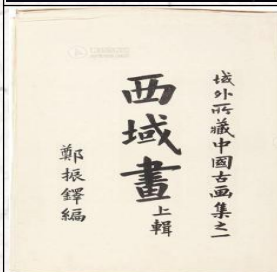 域外所藏中國古画集之一
西域畫上輯
鄭振鐸編